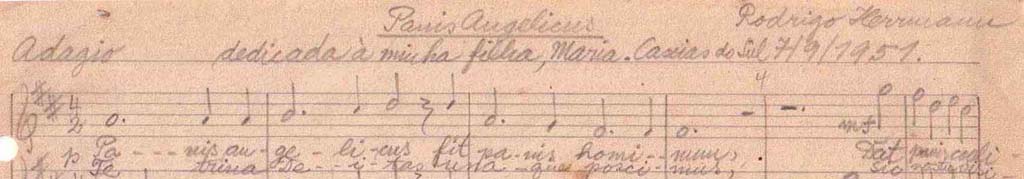 Panis Angelicus Rodrigo Herrmann
Adagio dedicada à minha filha, Maria. Caxias do Sul 7/9/1951.
4
4
2
mf
p Pa - - - nis an - ge - - li - cus fit pa - nis homi - - num, Dat panis coeli -
Te, trina De - - i - tas una - que posci - - mus,